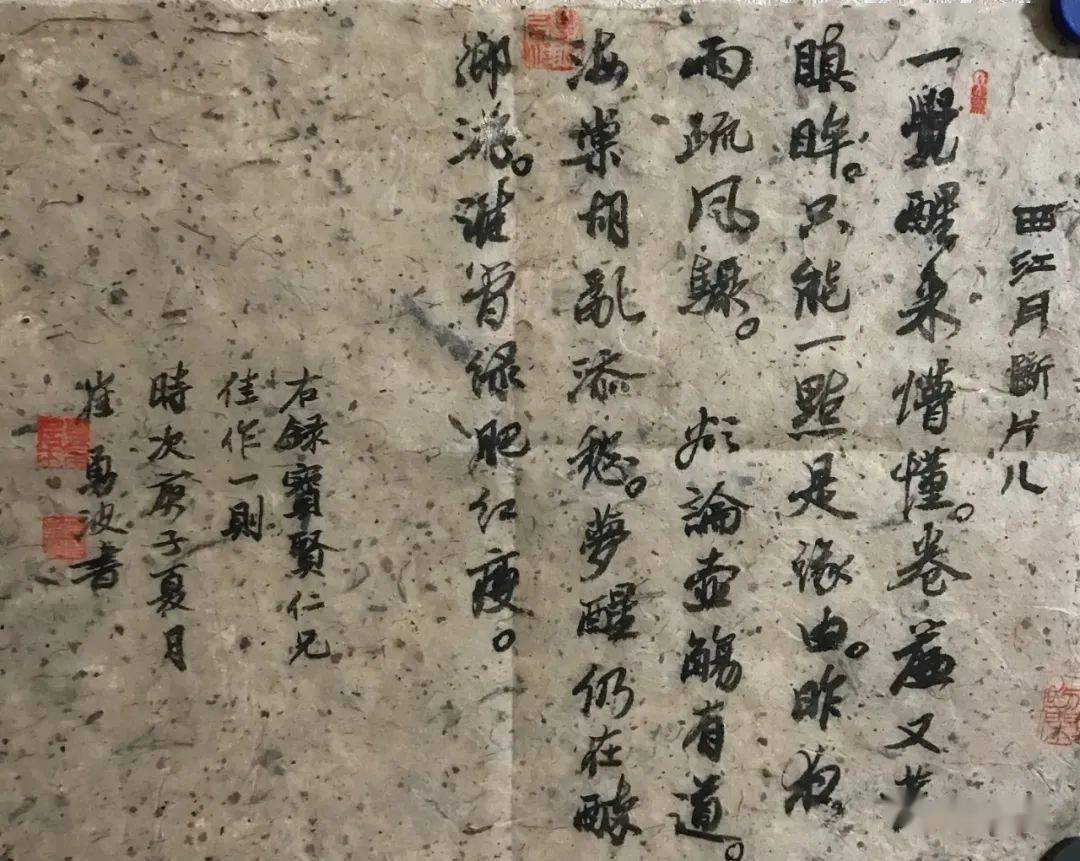 西江月斷片儿
一覺醒来懵懂。卷簾又
瞋眸。只能一點是緣由。昨夜
雨疏风驟。 欲論壺觴有道。
海棠胡亂添愁。夢醒仍在醉
鄉游。誰肯绿肥红瘦。
右録寶賢仁兄
佳作一則
時次庚子夏月
崔勇波書